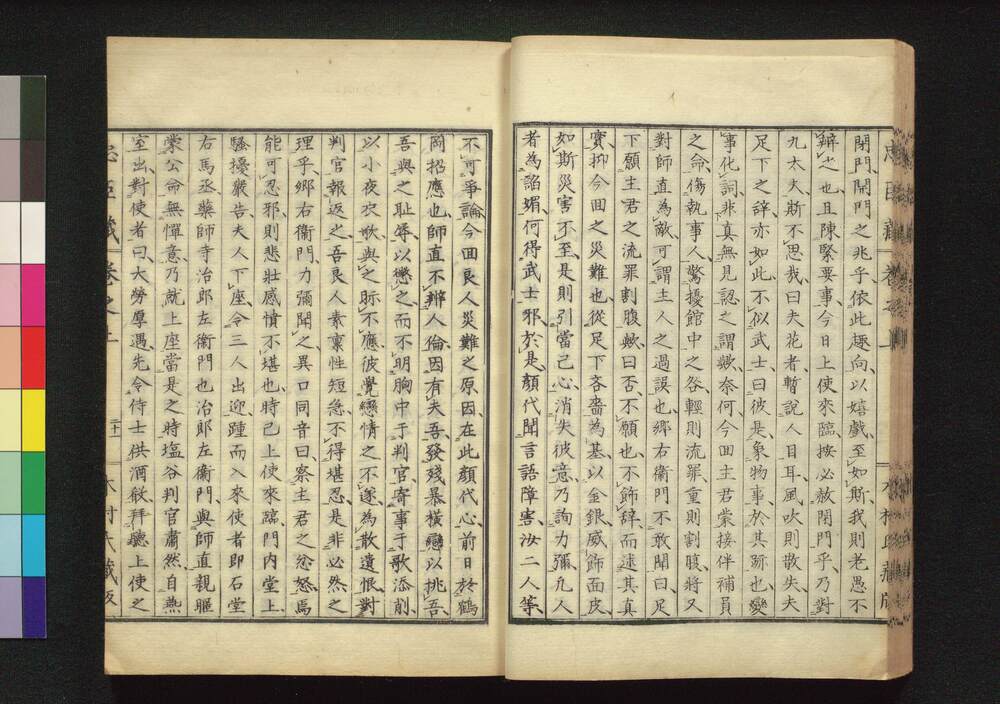 閉門開門之兆乎依此趣向以嬉戲至如斯我則老愚不
辨之也且陳緊要事今日上使來臨按必赦閉門乎乃對
九太夫斯不思我曰夫花者暫說人目耳風吹則散失夫
足下之辞亦如此不似武士曰彼是象物事於其跡也變
事化詞非真無見認之謂歟奈何今回主君蒙接伴補員
之命傷執事人驚擾館中之咎輕則流罪重則割腹將又
對師直為敵可謂主人之過誤也郷右衛門不敢聞曰足
下願主君之流罪割腹歟曰否不願也不飾辞而述其真
實抑今回之災難也從足下吝嗇為基以金銀威飾面皮
如斯災害不至是則引當己心消失彼意乃詢力彌九人
者為諂媚何得武士邪於是顏代聞言語障害汝二人等
不可爭論今回良人災難之原因在此顏代心前日於鶴
岡招應也師直不辨人倫因有夫吾發殘暴橫戀以挑吾
吾與之耻辱以懲之而不明胸中于判官寄事于歌添削
以小夜衣歌與之所不應彼覺戀情之不遂為散遺恨對
判官報返之吾良人素稟性短急不得堪忍是非必然之
理乎郷右衛門力彌聞之異口同音曰察主君之忿怒焉
能可忍邪則悲壯感憤不堪也時已上使來臨門內堂上
騷擾嚴告夫人下座令三人出迎踵而入來使者即石堂
右馬丞藥師寺治郎左衛門也治郎左衛門與師直親眤
蒙公命無憚意乃就上座當是之時塩谷判官肅然自燕
室出對使者曰大勞厚遇先令侍士供酒飲拜聽上使之
忠臣藏 卷之上 二十 木村氏藏版